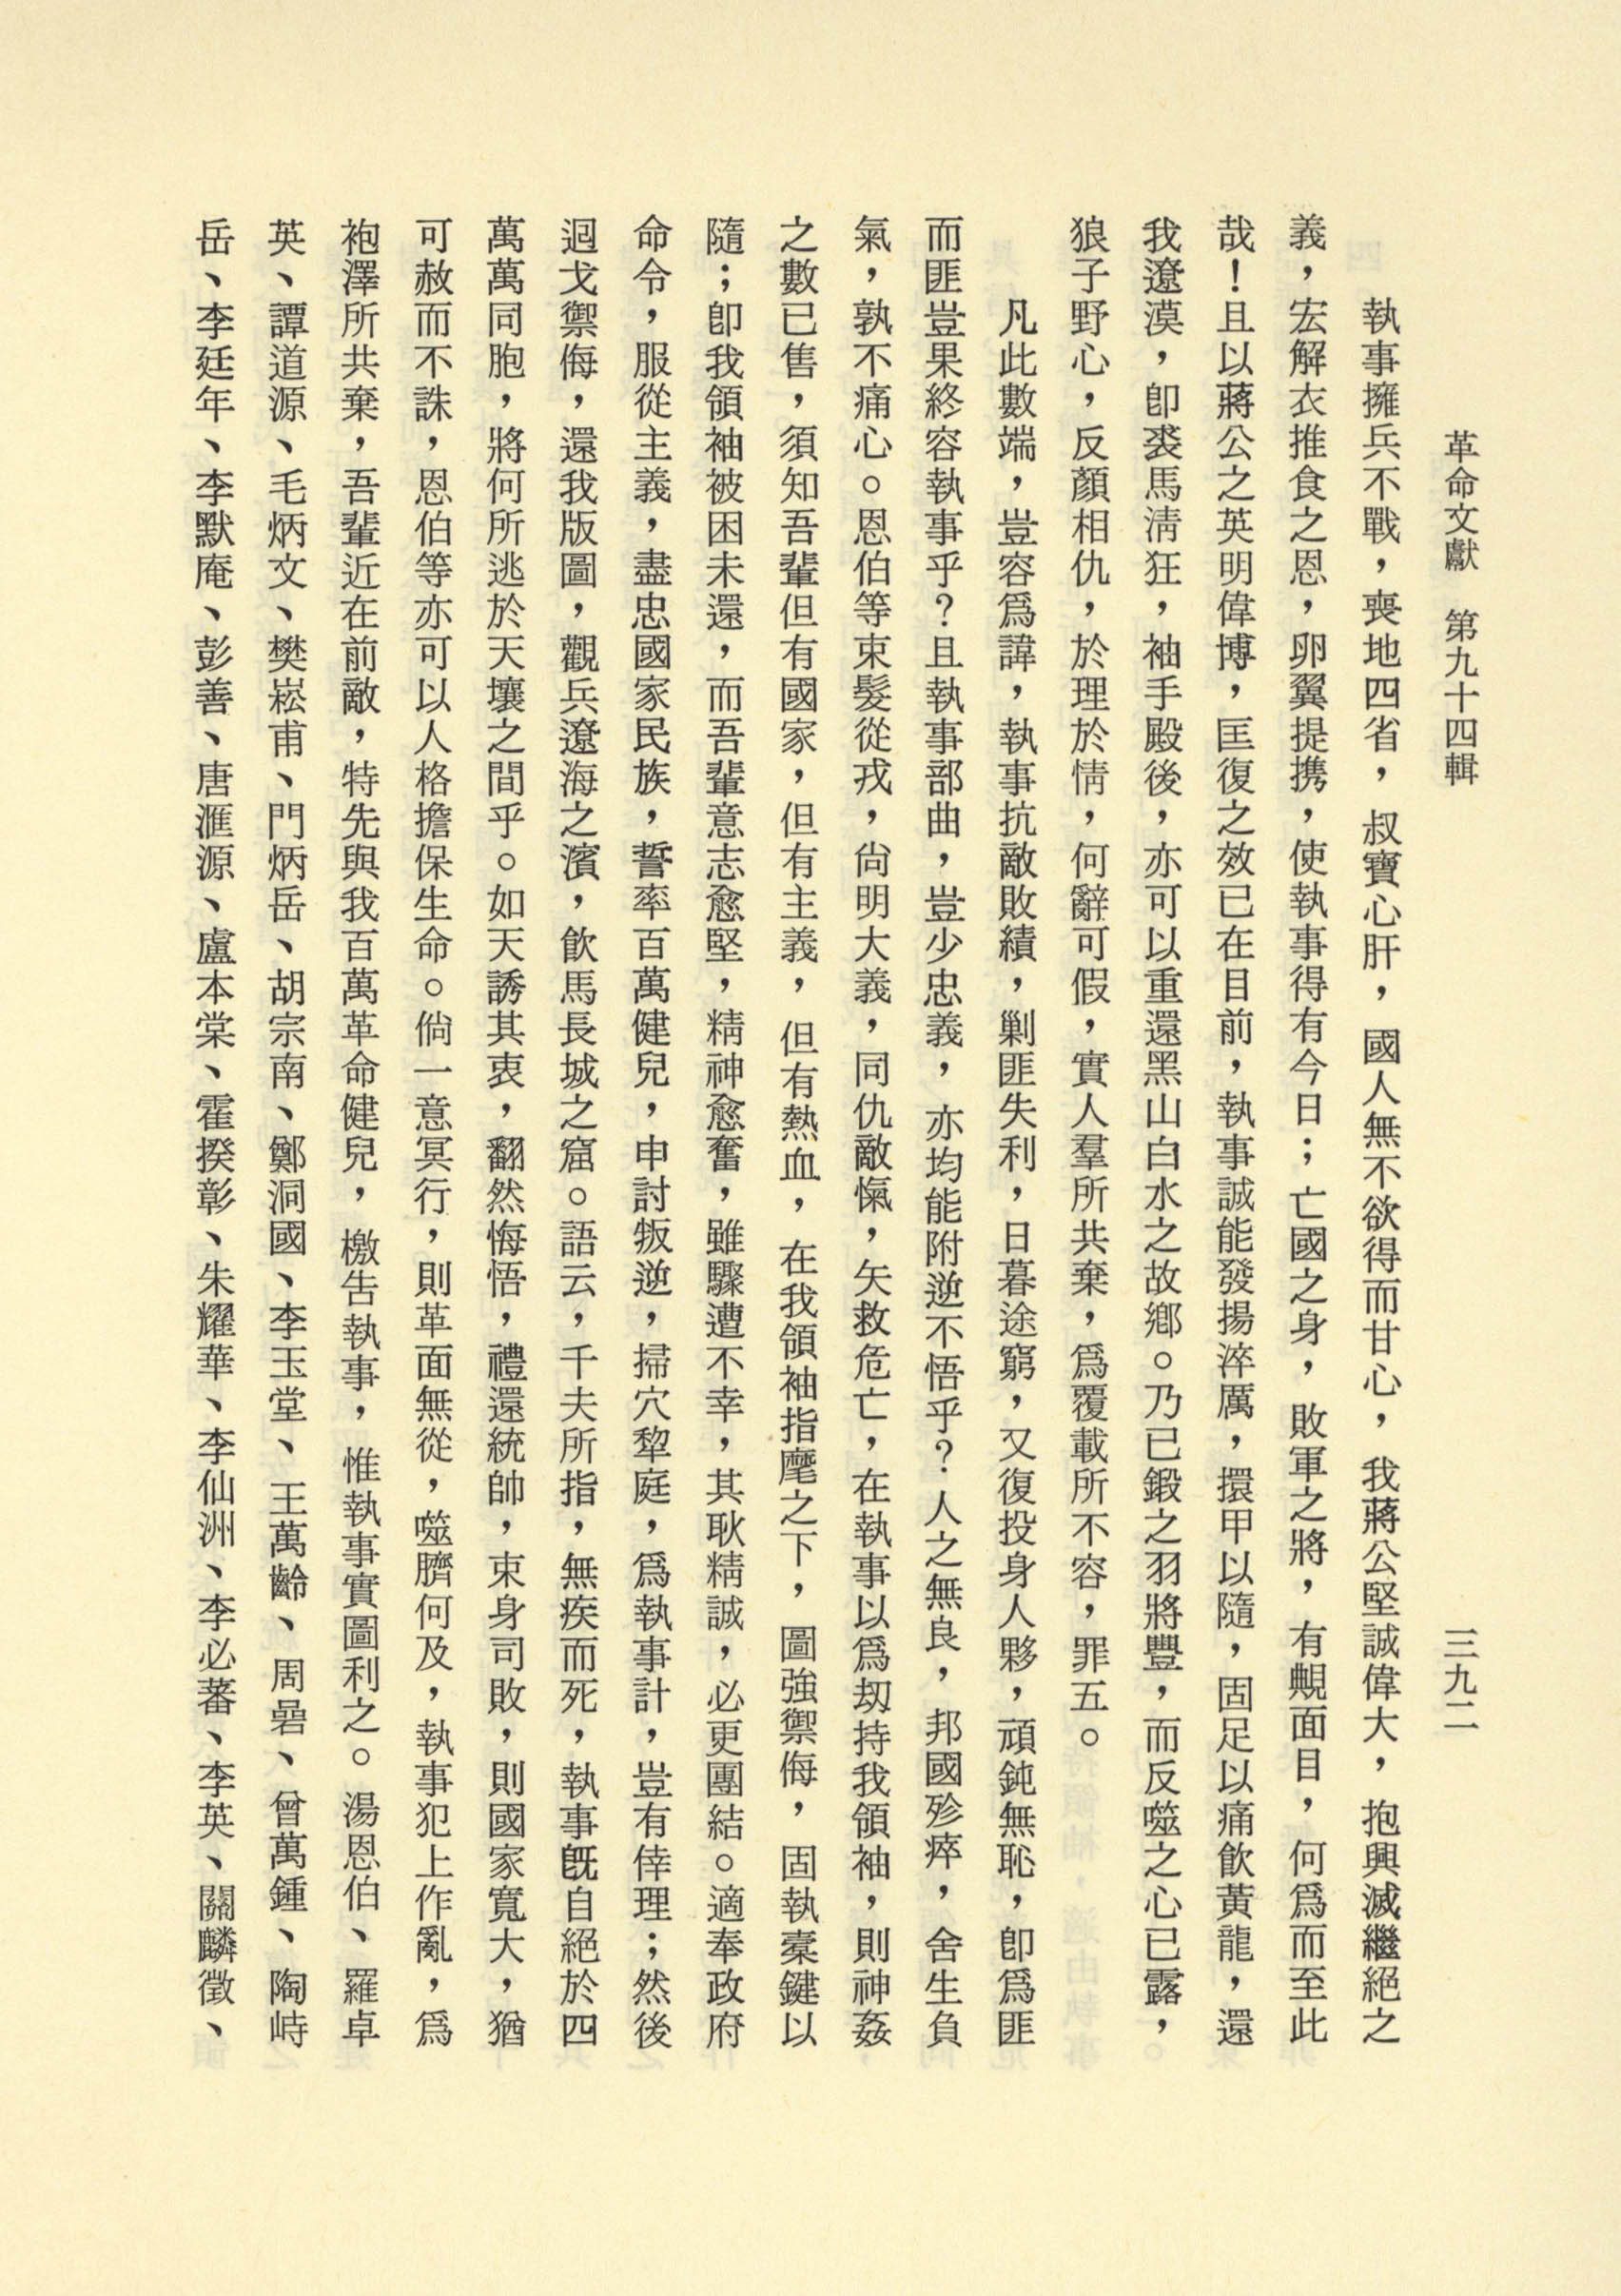 革命文獻　第九十四輯　三九二
執事擁兵不戰，喪地四省，叔寶心肝，國人無不欲得而甘心，我蔣公堅誠偉大，抱興滅繼絕之
義，宏解衣推食之恩，卵翼提携，使執事得有今日；亡國之身，敗軍之將，有靦面目，何爲而至此
哉！且以蔣公之英明偉博，匡復之效已在目前，執事誠能發揚淬厲，擐甲以隨，固足以痛飮黃龍，還
我遼漠，卽裘馬淸狂，袖手殿後，亦可以重還黑山白水之故鄕。乃已鍛之羽將豐，而反噬之心已露，
狼子野心，反顏相仇，於理於情，何辭可假，實人羣所共棄，爲覆載所不容，罪五。
凡此數端，豈容爲諱，執事抗敵敗績，剿匪失利，日暮途窮，又復投身人夥，頑鈍無恥，卽爲匪
而匪豈果終容執事乎？且執事部曲，豈少忠義，亦均能附逆不悟乎？人之無良，邦國殄瘁，舍生負
氣，孰不痛心。恩伯等束髮從戎，尙明大義，同仇敵愾，矢救危亡，在執事以爲刼持我領袖，則神姦
之數已售，須知吾輩但有國家，但有主義，但有熱血，在我領袖指麾之下，圖強禦侮，固執櫜鍵以
隨；卽我領袖被困未還，而吾輩意志愈堅，精神愈奮，雖驟遭不幸，其耿精誠，必更團結。適奉政府
命令，服從主義，盡忠國家民族，誓率百萬健兒，申討叛逆，掃穴犂庭，爲執事計，豈有倖理；然後
迴戈禦侮，還我版圖，觀兵遼海之濱，飮馬長城之窟。語云，千夫所指，無疾而死，執事旣自絕於四
萬萬同胞，將何所逃於天壤之間乎。如天誘其衷，翻然悔悟，禮還統帥，束身司敗，則國家寬大，猶
可赦而不誅，恩伯等亦可以人格擔保生命。倘一意冥行，則革面無從，噬臍何及，執事犯上作亂，爲
袍澤所共棄，吾輩近在前敵，特先與我百萬革命健兒，檄告執事，惟執事實圖利之。湯恩伯、羅卓
英、譚道源、毛炳文、樊崧甫、門炳岳、胡宗南、鄭洞國、李玉堂、王萬齡、周碞、曾萬鍾、陶峙
岳、李廷年、李默庵、彭善、唐滙源、盧本棠、霍揆彰、朱耀華、李仙洲、李必蕃、李英、關麟徵、